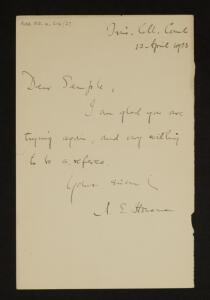 Trin. Coll. Camb.
12 April 1933
Dear Semple,
I am glad you are
trying again, and very willing
to be a referee.
Yours sincerely
A. E. Housman